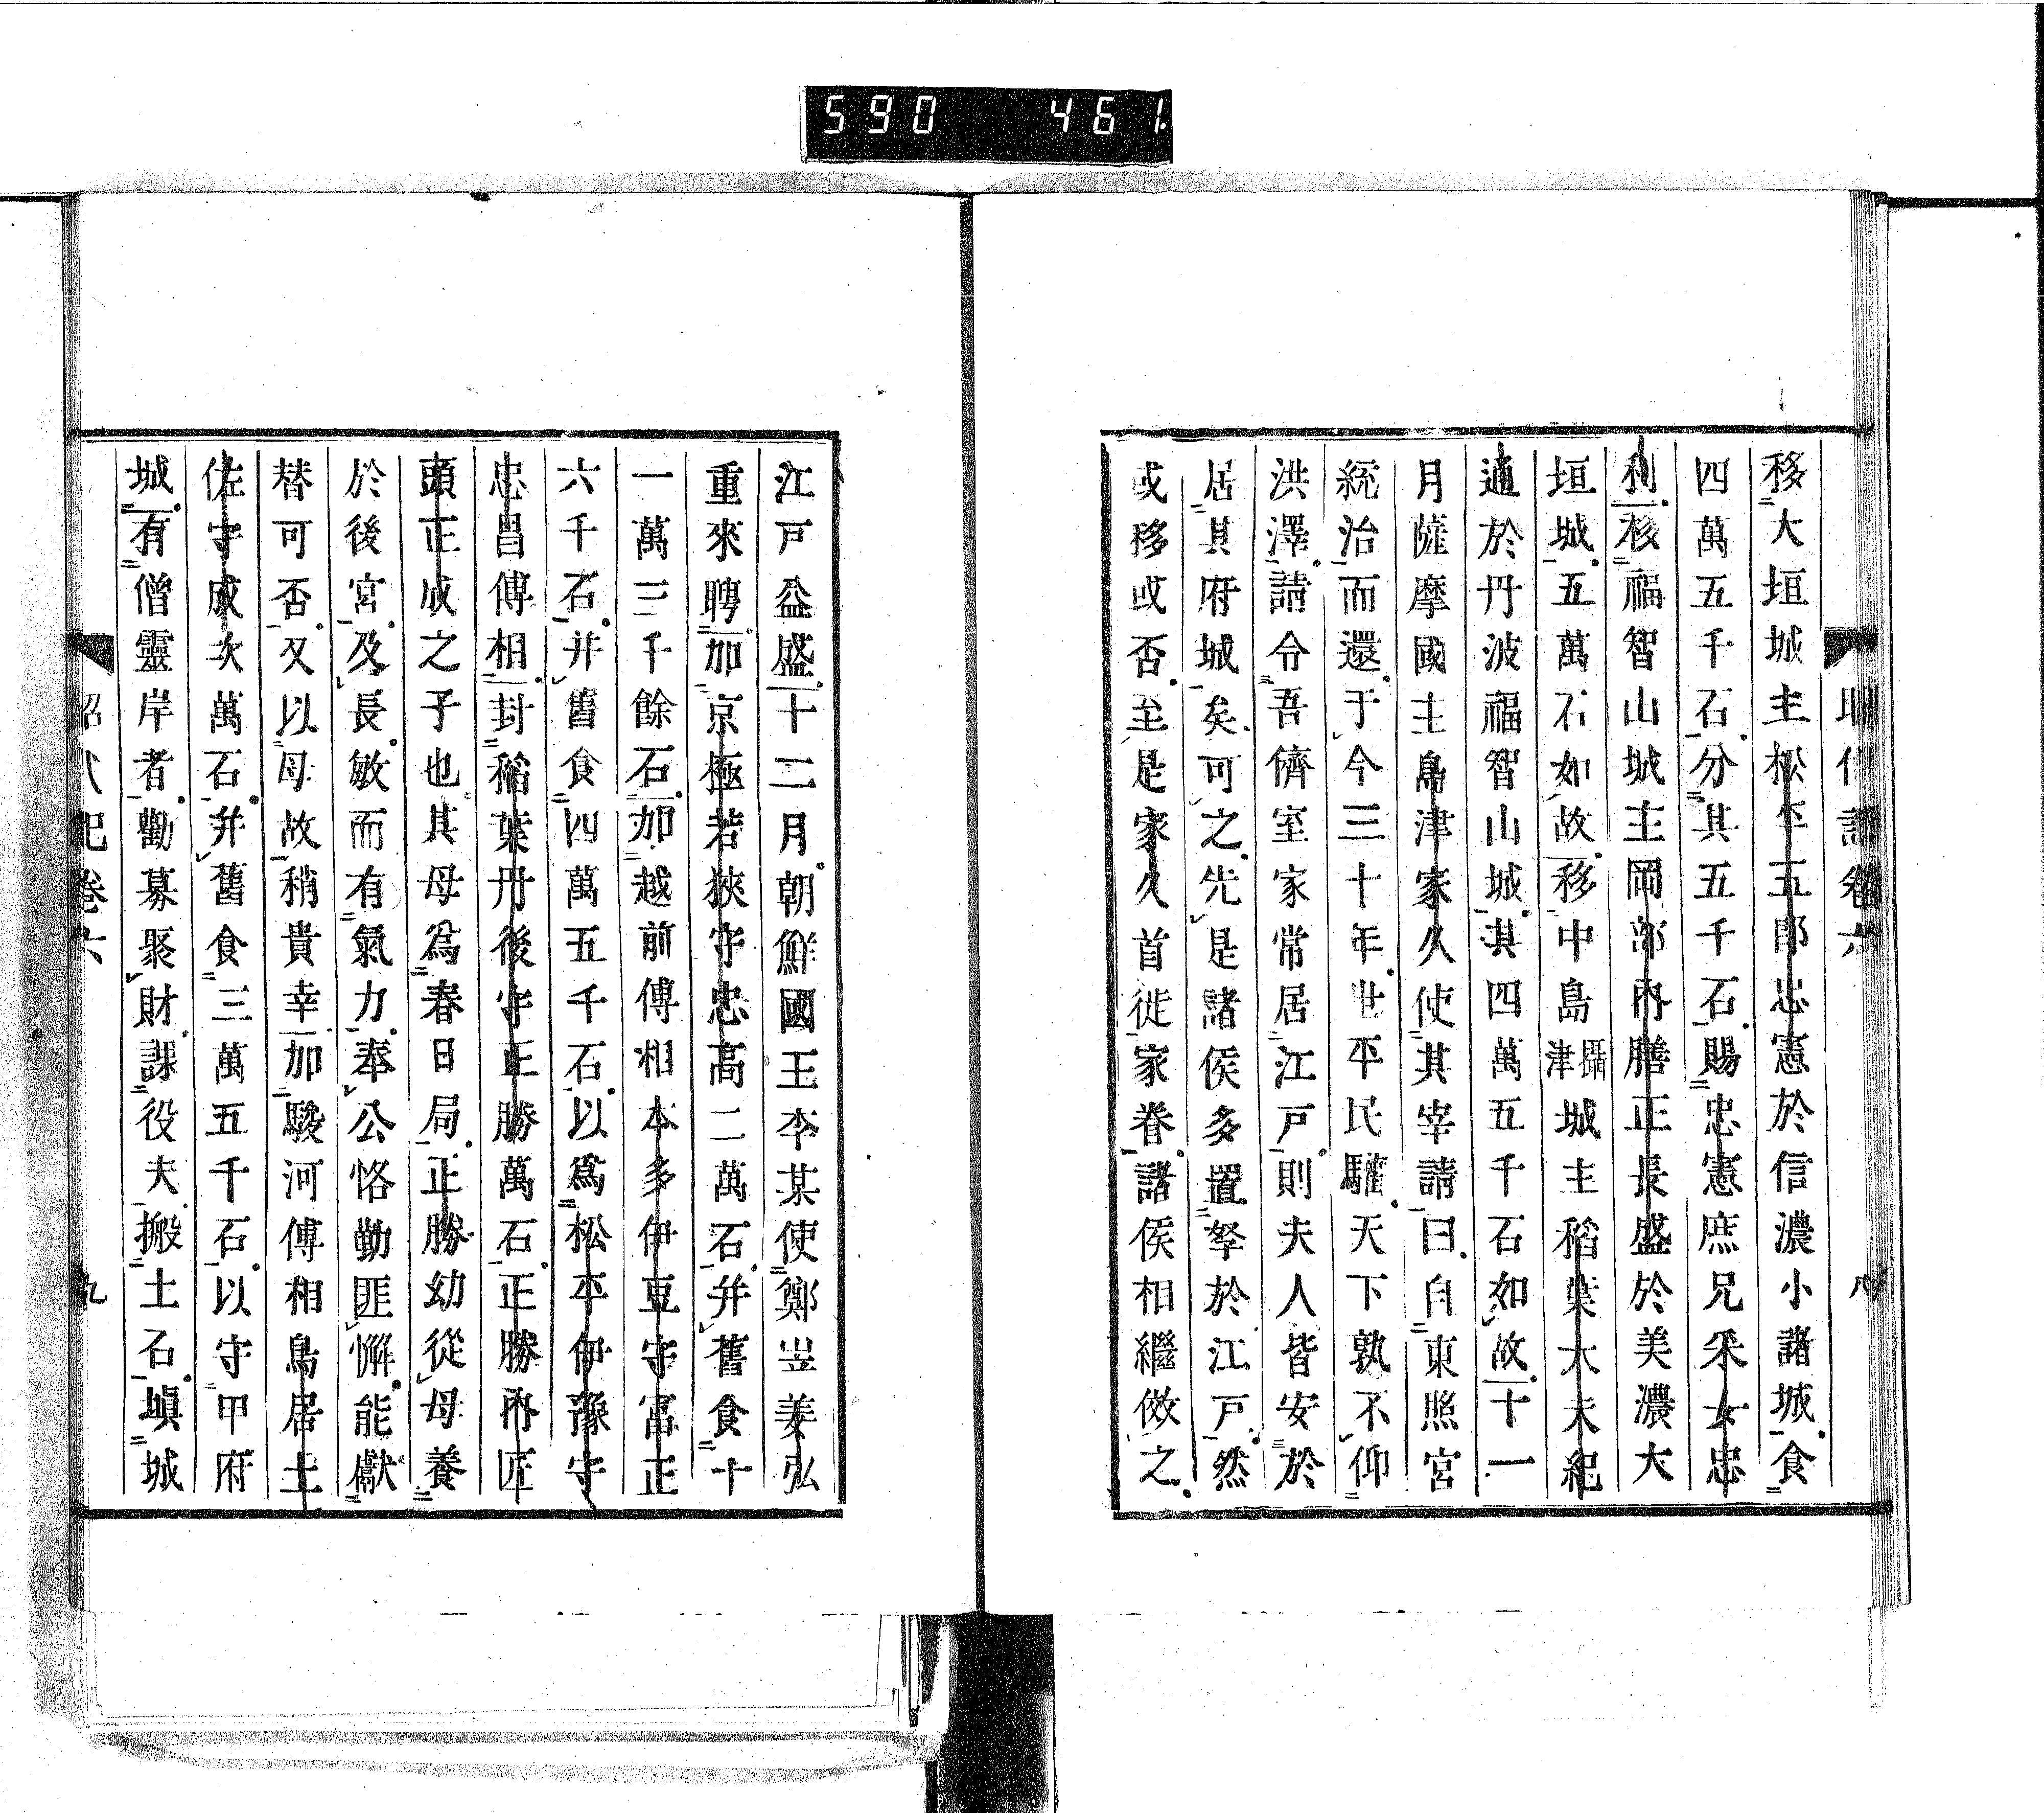 590 461
移大垣城主松平五郎忠憲於信濃小諸城食
四萬五千石分其五千石賜忠憲庶兄釆女忠
利移福智山城主岡部內膳正長盛於美濃大
垣城五萬石如故移中島攝津城主稻葉大夫紀
通於丹波福智山城其四萬五千石如故十一
月薩摩國主島津家久使其宰請曰自東照宮
統治而還于今三十年世平民驩天下孰不仰
洪澤請令吾儕室家常居江戶則夫人皆安於
居其府城矣可之先是諸侯多置孥於江戶然
或移或否至是家久首徙家眷諸侯相繼傚之
八
江戶益盛十二月朝鮮國王李某使鄭岦姜弘
重來聘加京極若狹守忠高二萬石并舊食十
一萬三千餘石加越前傅相本多伊豆守富正
六千石并舊食四萬五千石以爲松平伊豫守
忠昌傅相封稻葉丹後守正勝萬石正勝內匠
頭正成之子也其母爲春日局正勝幼從母養
於後宮及長敏而有氣力奉公恪勤匪懈能獻
替可否又以母故稍貴幸加駿河傅相鳥居土
佐守成次萬石并舊食三萬五千石以守甲府
城有僧靈岸者勸募聚財課役夫搬土石塡城
卷六
九